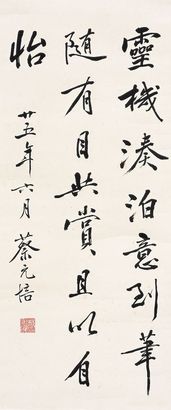 靈機湊泊意到筆
随有目共賞且以自
怡
廿五年六月 蔡元培